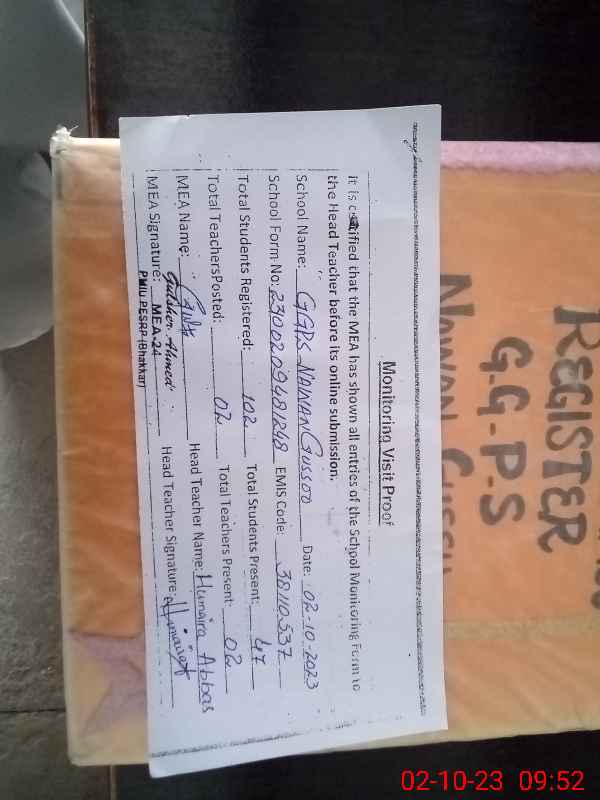 Monitoring Visit Proof
it is certified that the MEA has shown all entries of the School Monitoring Form to
the Head Teacher before its online submission.
School Name: GGPS NAWAN GUSSOO Date: 02-10-2023
School Form No: 2300209481248 EMIS Code: 38110537
Total Students Registered: 102 Total Students Present: 47
Total TeachersPosted: 02 Total Teachers Present: 02
MEA Name: Gulsher Ahmed Head Teacher Name: Humaira Abbas
MEA Signature: MEA-24 Head Teacher Signature:
PMIU PESRP (Bhakkar)
REGISTER
G.G.P.S
Nawan
02-10-23 09:52